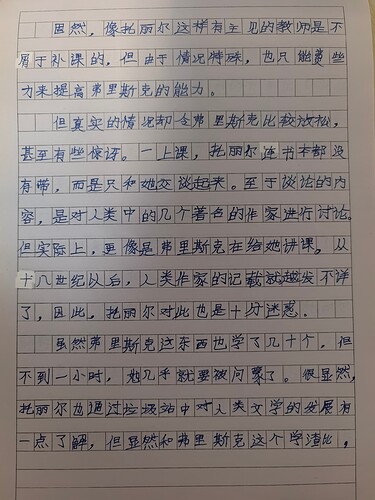 固然，像托丽尔这样有主见的教师是不
屑于补课的，但由于情况特殊，也只能费些
力来提高弗里斯克的能力。
但真实的情况却令弗里斯克比较放松，
甚至有些惊讶。一上课，托丽尔连书本都没
有带，而是只和她交谈起来。至于谈论的内
容，是对人类中的几个著名的作家进行讨论。
但实际上，更像是弗里斯克在给她讲课。从
十几世纪以后，人类作家的记载就越发不详
了，因此，托丽尔对此也是十分迷惑。
虽然弗里斯克这东西也学了几十个，但
不到一小时，她几乎就要被问蒙了。很显然，
托丽尔也通过垃圾站中对人类文学的发展有
一点了解，但显然和弗里斯克这个学渣比，